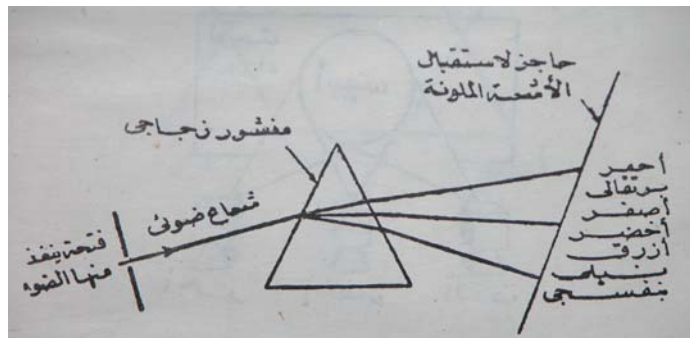 حاجز لاستقبال
الأشعة الملونة
منشور زجاجى
شعاع ضوئى
فتحة ينفذ
منها الضوء
أحمر
برتقالى
أصفر
أخضر
أزرق
نيلى
بنفسجى